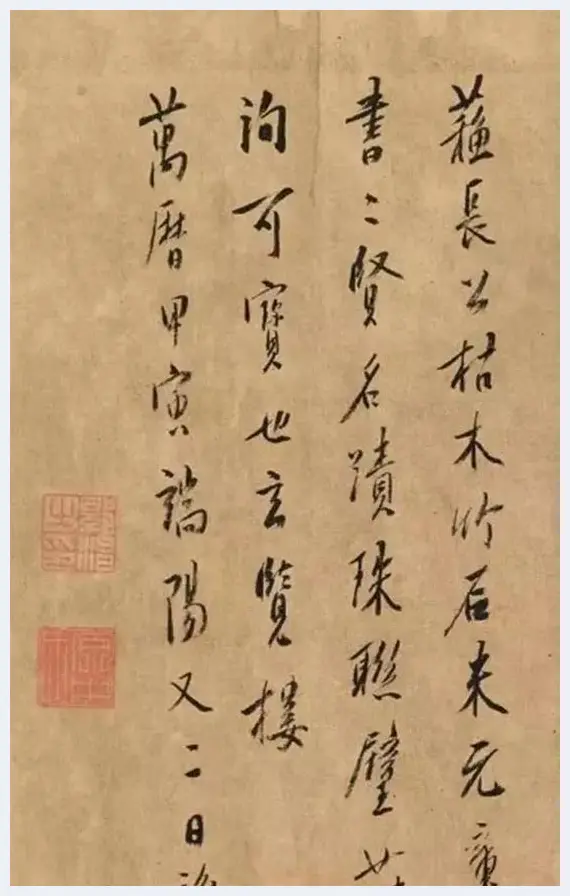 蘇長公枯木竹石米元章
書二賢名蹟珠聯璧
洵可寶也玄覽樓
萬曆甲寅端陽又二日